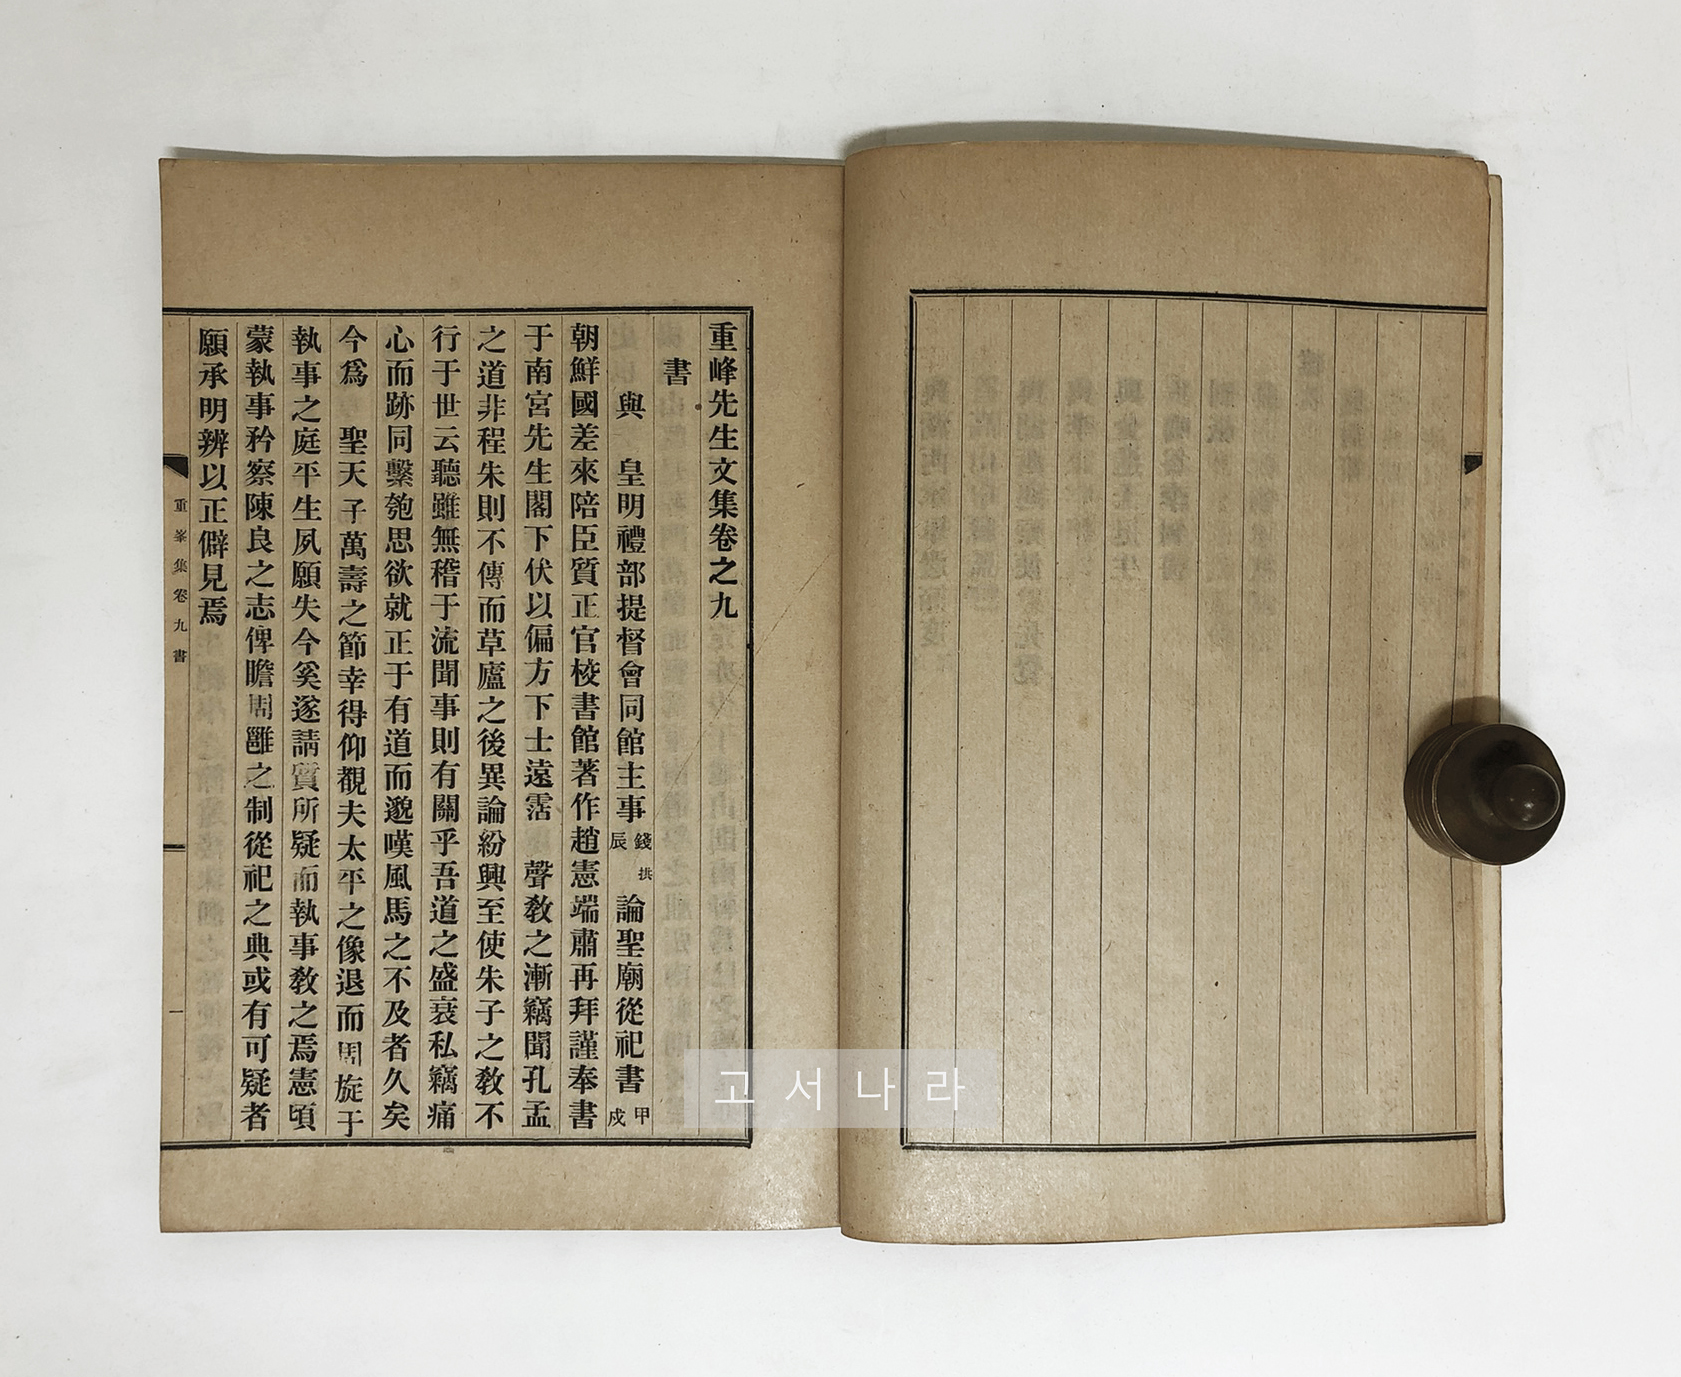 重峰先生文集卷之九
書
與 皇明禮部提督會同館主事錢拱辰論聖廟從祀書甲戌
朝鮮國差來陪臣質正官校書館著作趙憲端肅再拜謹奉書
于南宮先生閣下伏以偏方下士遠霑 聲敎之漸竊聞孔孟
之道非程朱則不傳而草廬之後異論紛興至使朱子之敎不
行于世云聽雖無稽于流聞事則有關乎吾道之盛衰私竊痛
心而跡同繫匏思欲就正于有道而邈嘆風馬之不及者久矣
今爲 聖天子萬壽之節幸得仰覩夫太平之像退而周旋于
執事之庭平生夙願失今奚遂請質所疑而執事敎之焉憲頃
蒙執事矜察陳良之志俾瞻周雝之制從祀之典或有可疑者
願承明辨以正僻見焉
重峯集卷九 書
一
고서나라